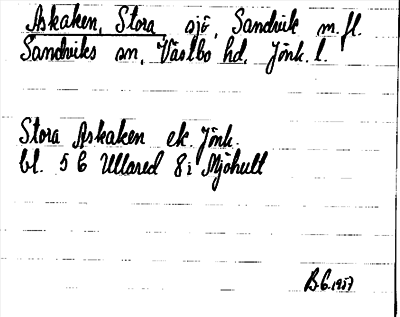 Askaken, Stora sjö, Sandvik m.fl.
Sandviks sn, Västbo hd, Jönk. l.
Stora Askaken ek. Jönk.
bl. 5 C Ullared 8i Mjöhult
B.G. 1957